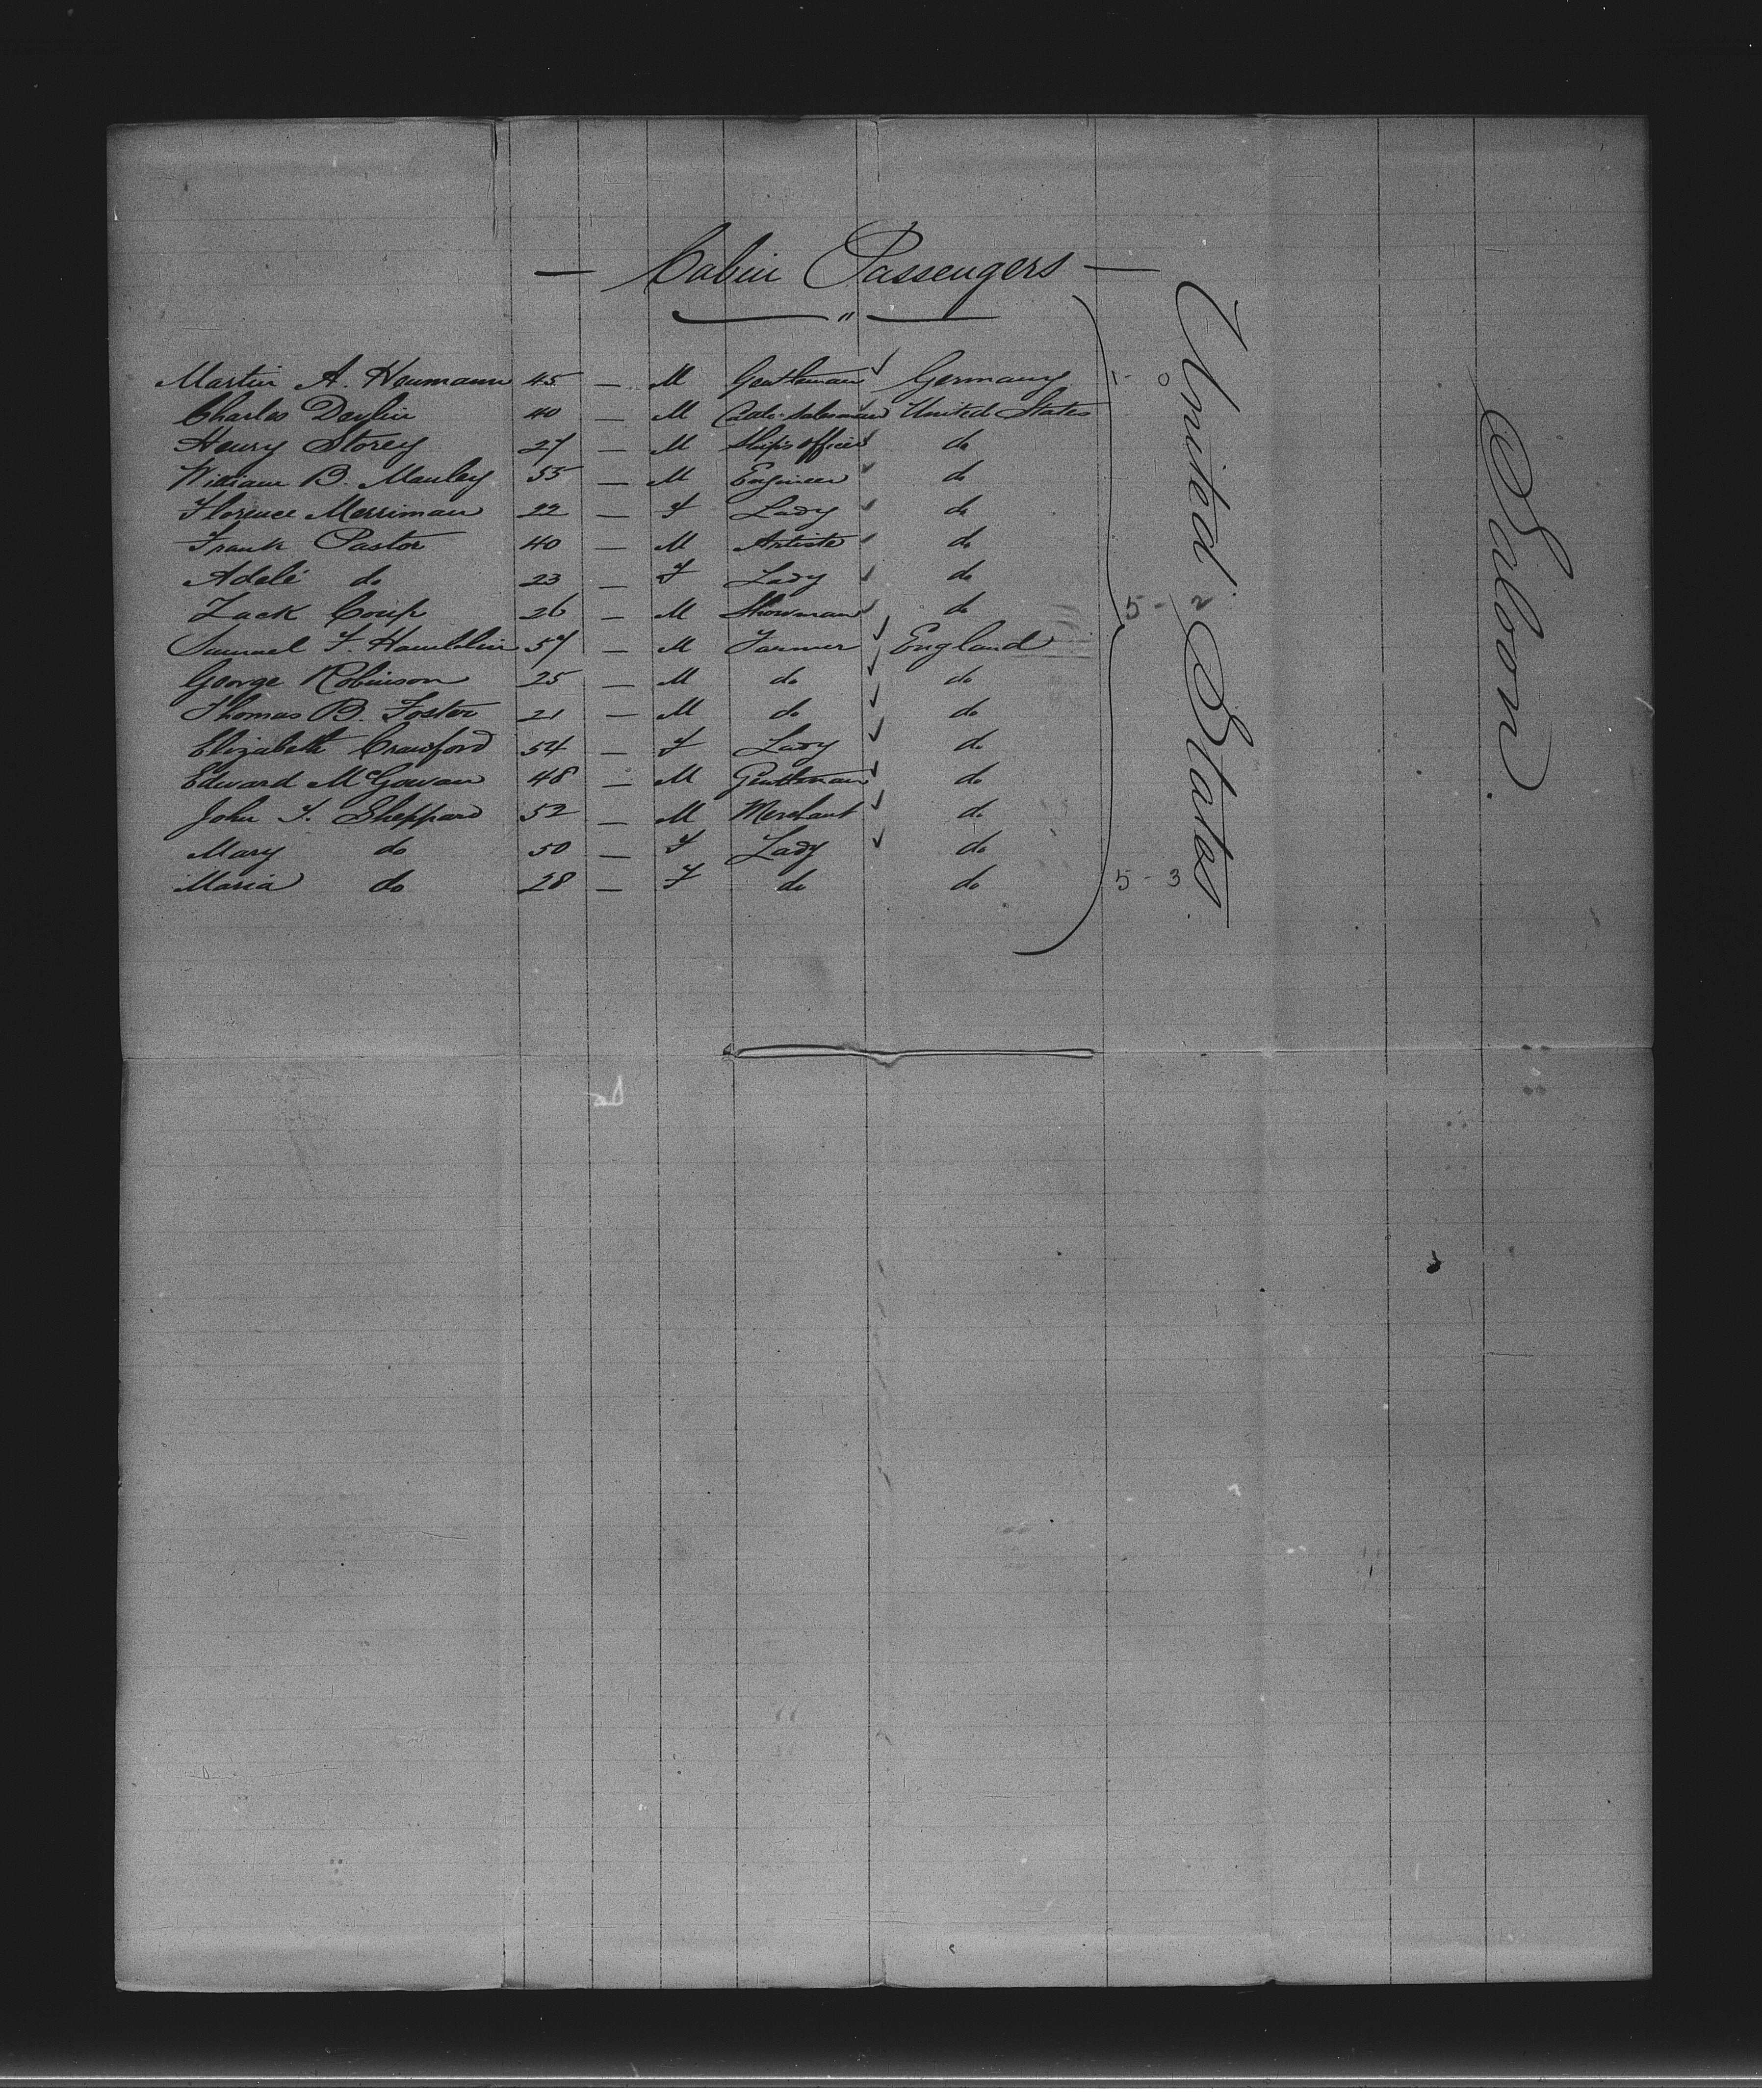 — Cabin Passengers —
"
Martin A. Heumann 45 — M Gentleman Germany 1 - 0
Charles Devlin 40 — M Cattle-salesman United States
Henry Storey 27 — M Ship's officer do
William B. Manley 55 — M Engineer do
Florence Merriman 22 — F Lady do
Frank Pastor 40 — M Artiste do
Adelé do 23 — F Lady do
Zack Coup 26 — M Showman do 5 - 2
Samuel F. Hamblin 57 — M Farmer England
George Robinson 25 — M do do
Thomas B. Foster 21 — M do do
Elizabeth Crawford 54 — F Lady do
Edward McGowan 48 — M Gentleman do
John T. Sheppard 52 — M Merchant do
Mary do 50 — F Lady do
Maria do 28 — F do do 5 - 3
United States
Saloon.